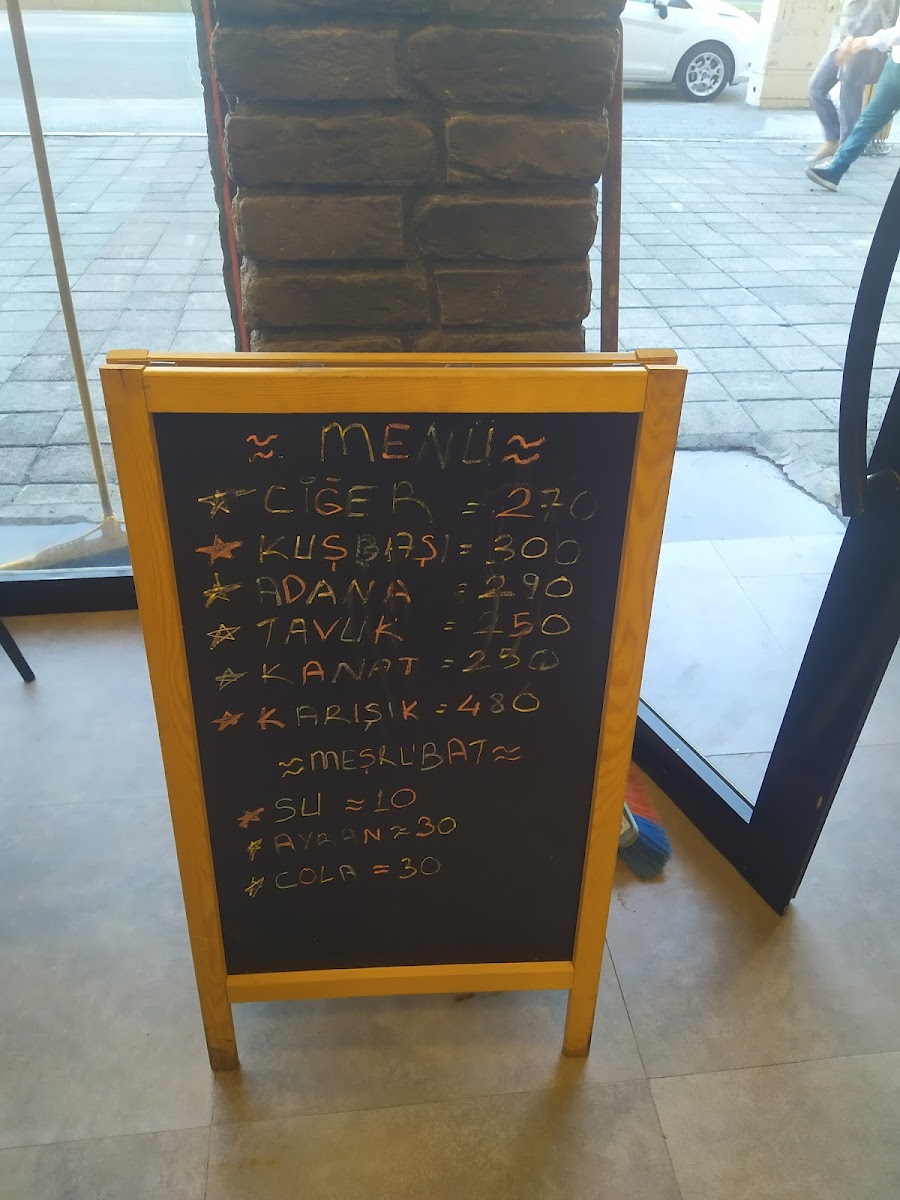 ≈ MENÜ ≈
☆ CİĞER = 270
★ KUŞBAŞI = 300
☆ ADANA = 290
☆ TAVUK = 250
☆ KANAT = 250
★ KARIŞIK = 480
≈ MEŞRUBAT ≈
★ SU ≈ 10
☆ AYRAN ≈ 30
☆ COLA = 30